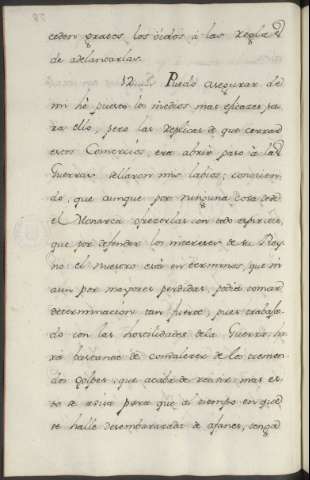 ceder gratos los oidos à las reglas
de adelantarlas.
12. Puedo asegurar de
mi hè puesto los medios mas eficazes pa
ra ello, pero las replicas de que cerrar
estos Comercios, era abrir paso à las
Guerras sellaron mis labios; conocien
do, que aunque por ninguna cosa debe
el Monarca apetecerlas con todo espiritu,
que por defender los intereses de su Rey
no el nuestro està en terminos, que ni
aun por mayores perdidas, podia tomar
determinacion tan fuerte, pues trabaja
do con las hostilidades de la Guerra, ha
rà bastante de combalecer de los tremen
dos golpes, que acaba de resistir: mas es
to se avisa para que al tiempo en que
se halle desembarazada de afanes, tenga